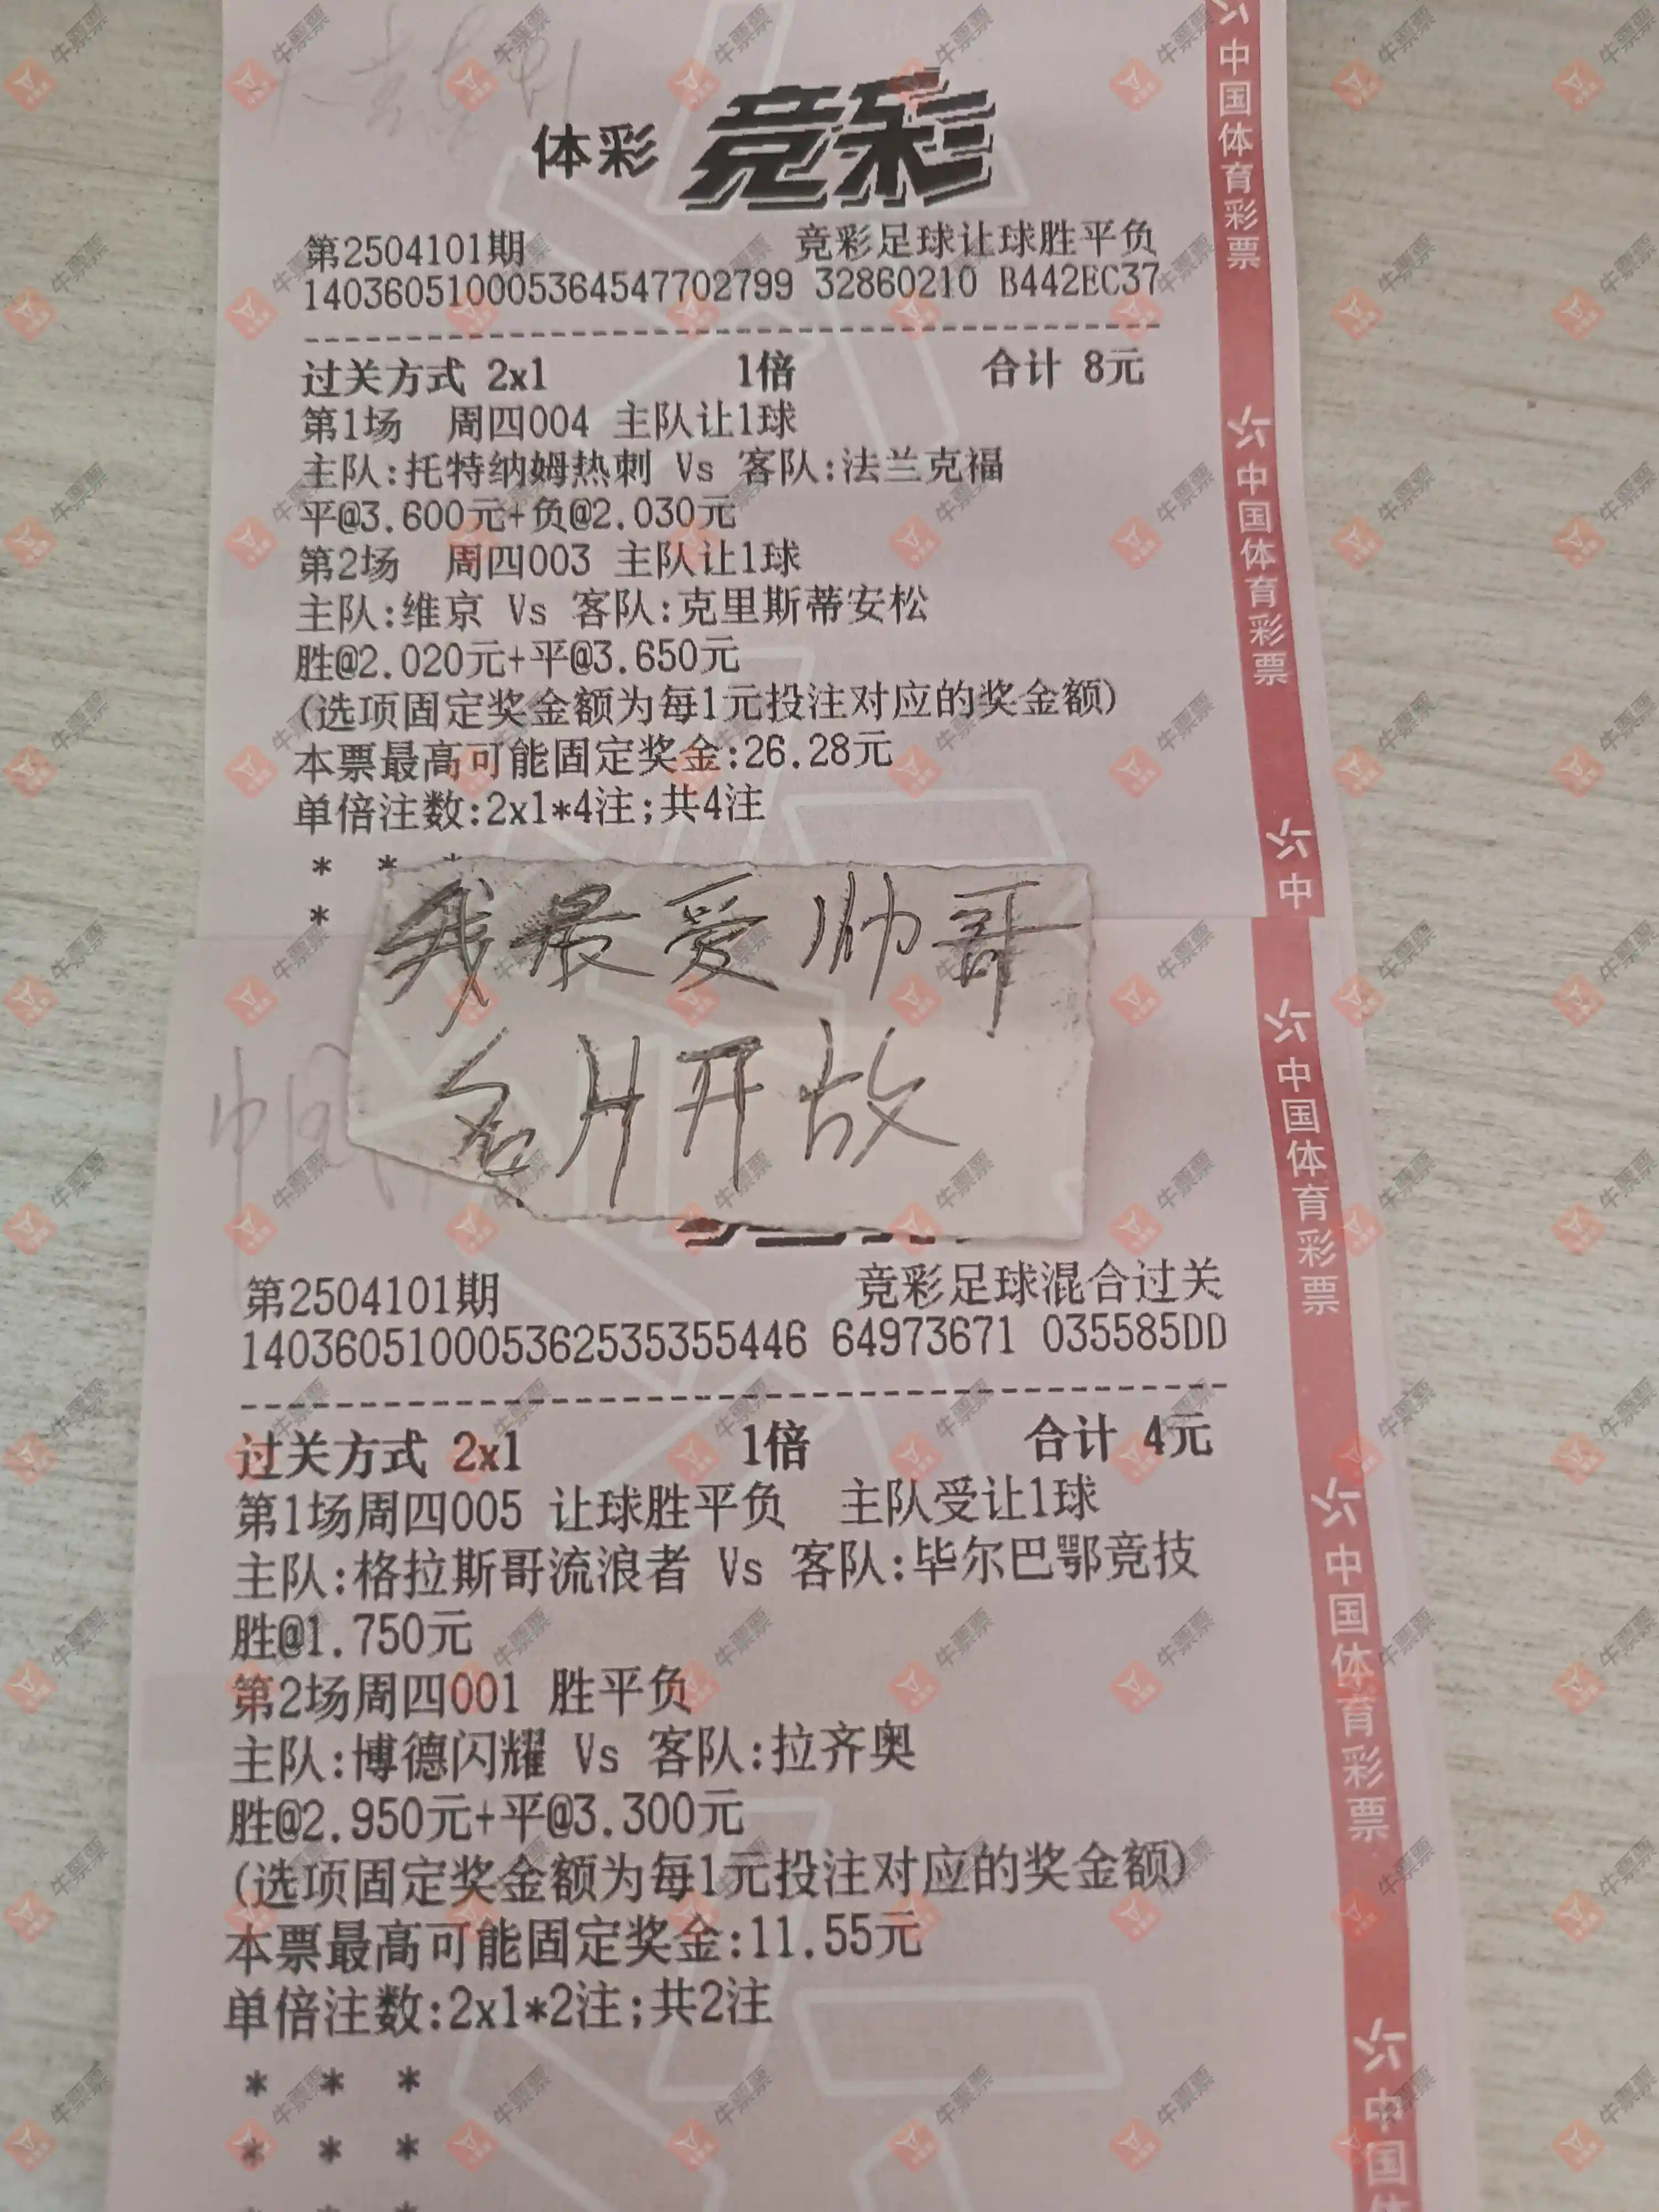 体彩 竞彩
第2504101期 竞彩足球让球胜平负
140360510005364547702799 32860210 B442EC37
过关方式 2x1 1倍 合计 8元
第1场 周四004 主队让1球
主队:托特纳姆热刺 Vs 客队:法兰克福
平@3.600元+负@2.030元
第2场 周四003 主队让1球
主队:维京 Vs 客队:克里斯蒂安松
胜@2.020元+平@3.650元
(选项固定奖金额为每1元投注对应的奖金额)
本票最高可能固定奖金:26.28元
单倍注数:2x1*4注;共4注
* * *
*
我最爱帅哥
名片开放
第2504101期 竞彩足球混合过关
140360510005362535355446 64973671 035585DD
过关方式 2x1 1倍 合计 4元
第1场周四005 让球胜平负 主队受让1球
主队:格拉斯哥流浪者 Vs 客队:毕尔巴鄂竞技
胜@1.750元
第2场周四001 胜平负
主队:博德闪耀 Vs 客队:拉齐奥
胜@2.950元+平@3.300元
(选项固定奖金额为每1元投注对应的奖金额)
本票最高可能固定奖金:11.55元
单倍注数:2x1*2注;共2注
* * *
* * *
中国体育彩票
中国体育彩票
中
中国体育彩票
中国体育彩票
中国体
牛票票